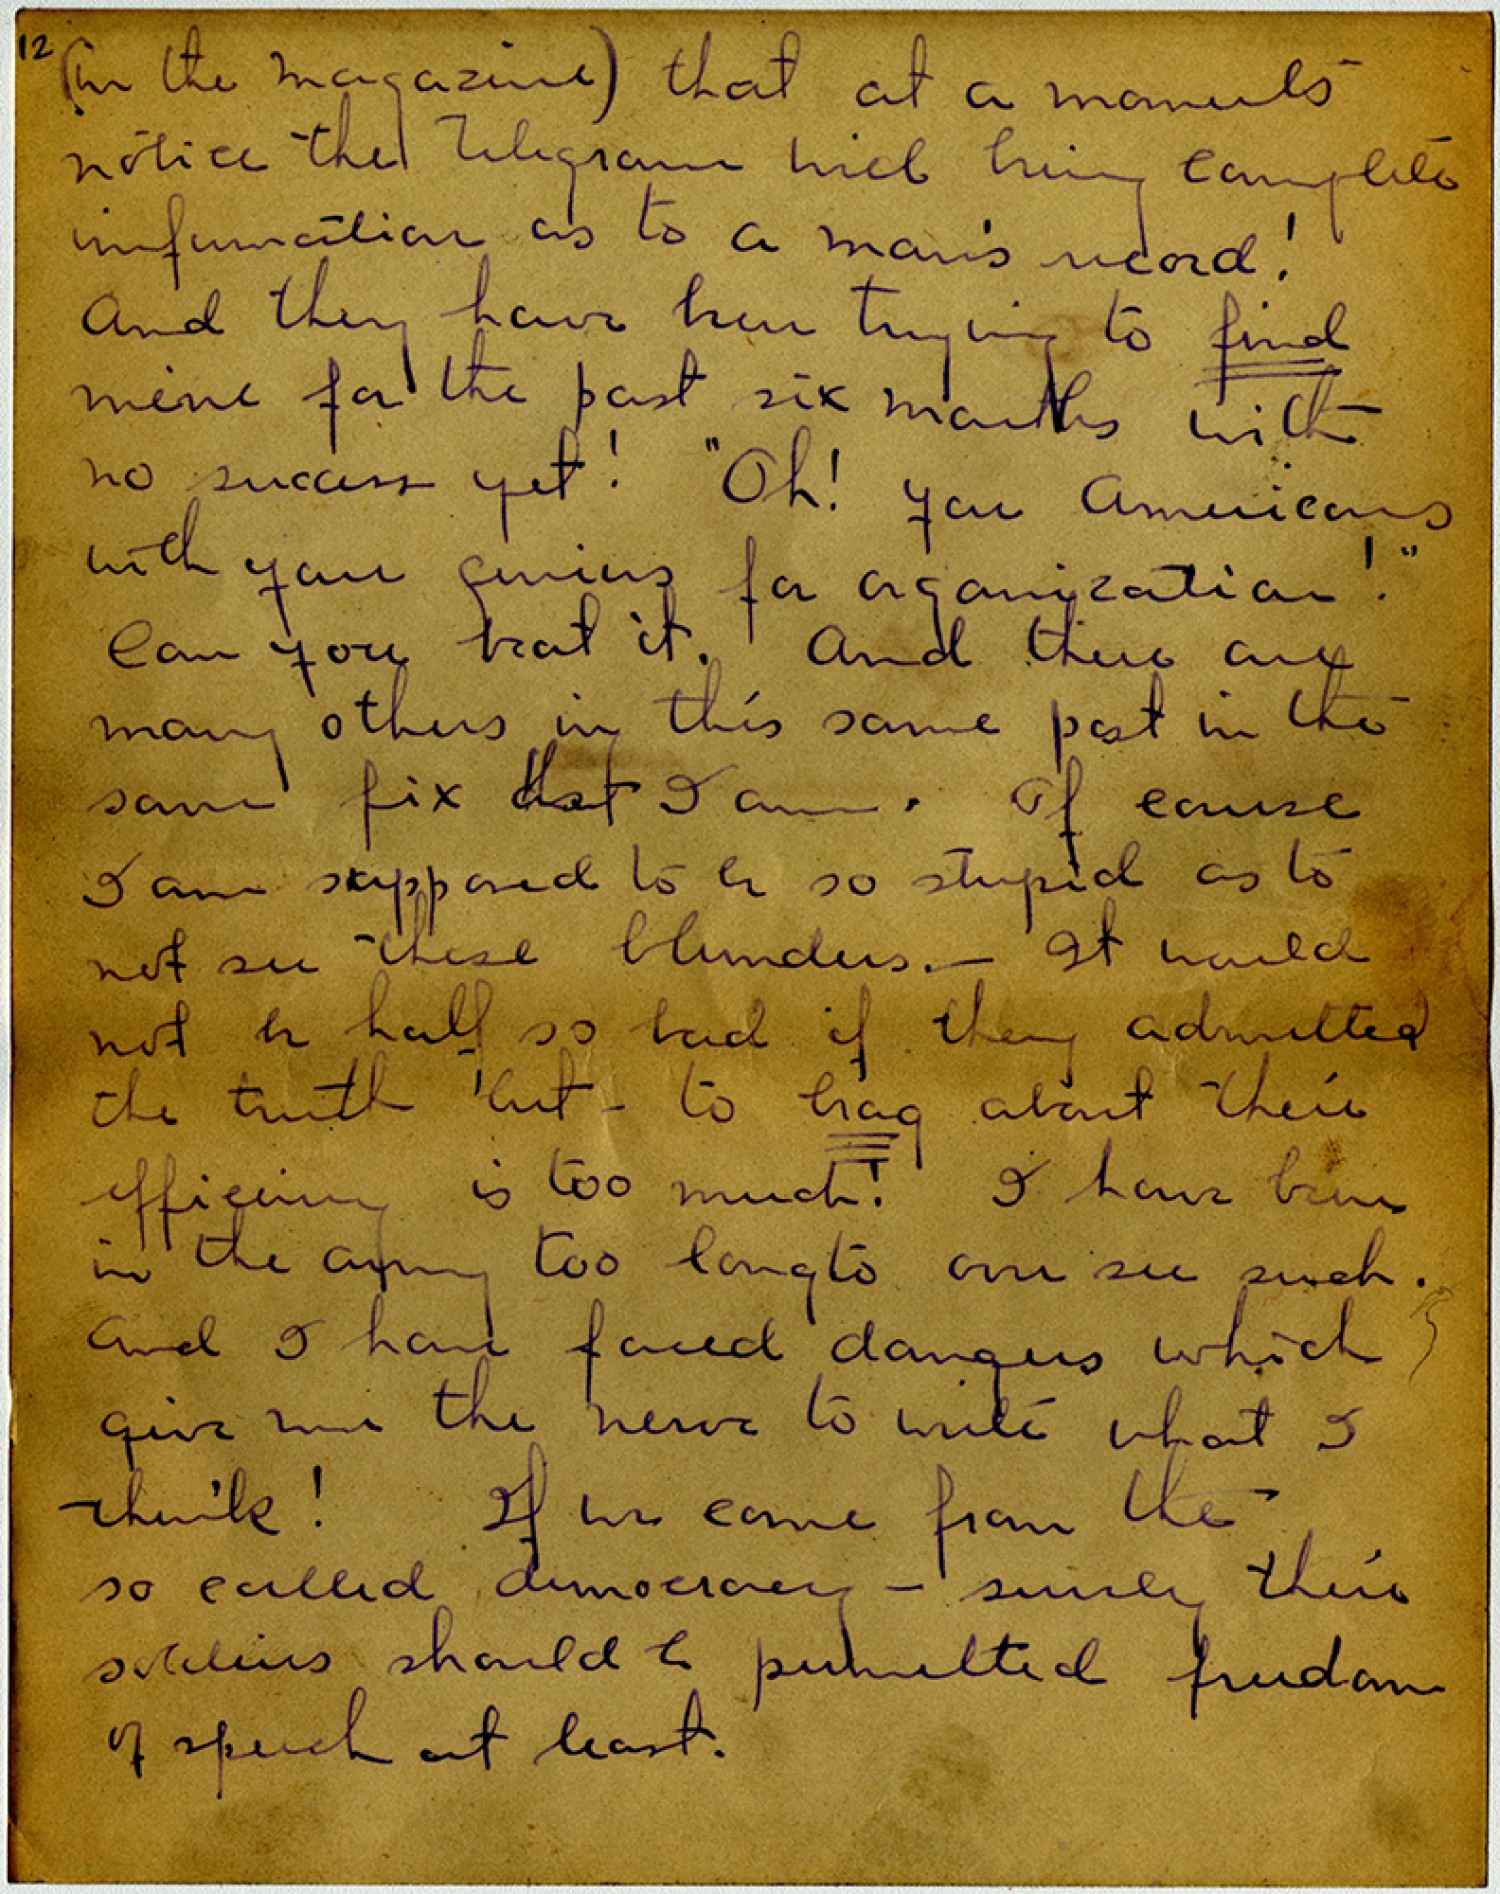 12
(in the magazine) that at a moments
notice the Telegram will bring complete
information as to a man's record!
And they have been trying to find
mine for the past six months with
no success yet! "Oh! you Americans
with your genius for organization!"
Can you beat it. And there are
many others in this same post in the
same fix that I am. Of course
I am supposed to be so stupid as to
not see these blunders. — It would
not be half so bad if they admitted
the truth but - to brag about their
efficiency is too much! I have been
in the army too long to over see such.
And I have faced dangers which
give me the nerve to write what I
think! If we come from the
so called democracy — surely their
soldiers should be permitted freedom
of speech at least.